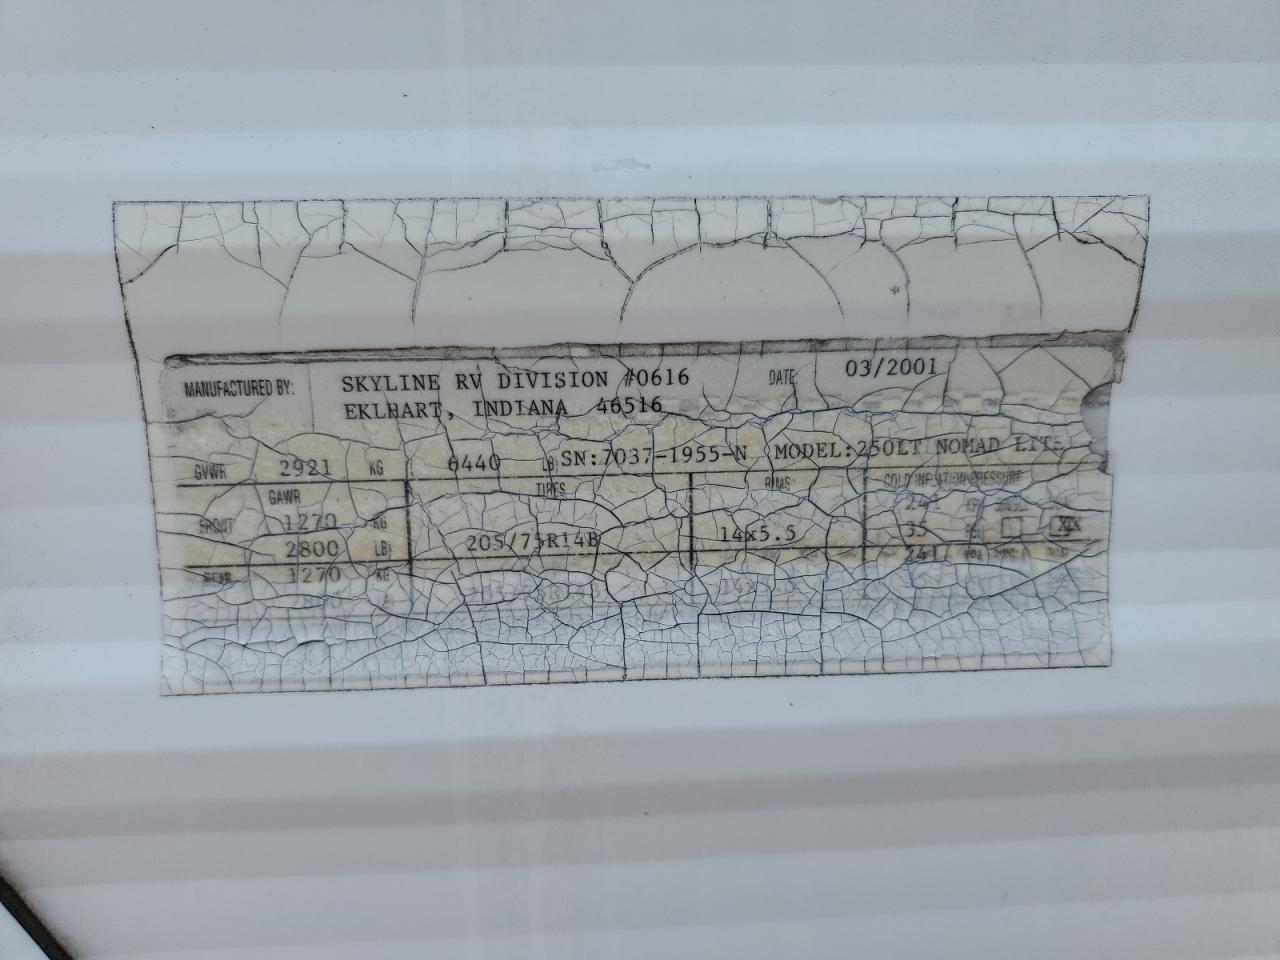 MANUFACTURED BY: SKYLINE RV DIVISION #0616 DATE: 03/2001
EKLHART, INDIANA 46516
GVWR 2921 KG 6440 LB SN:7037-1955-N MODEL:250LT NOMAD LITE
GAWR TIRES RIMS COLD INFLATION PRESSURE
FRONT 1270 KG 205/75R14B 14x5.5 241
2800 LB 35 XX
1270 KG 241